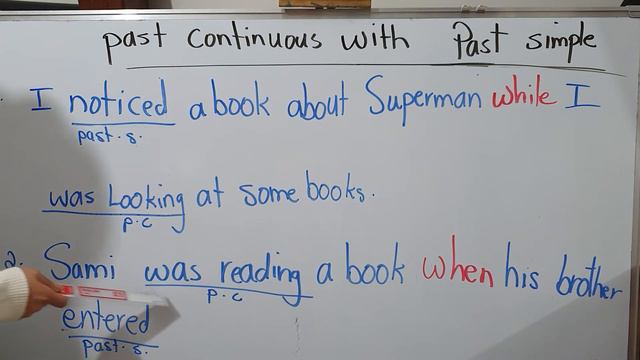 past continuous with Past simple
I noticed a book about Superman while I
past.s.
was Looking at some books.
p.c
2. Sami was reading a book when his brother
p.c
entered
past.s.